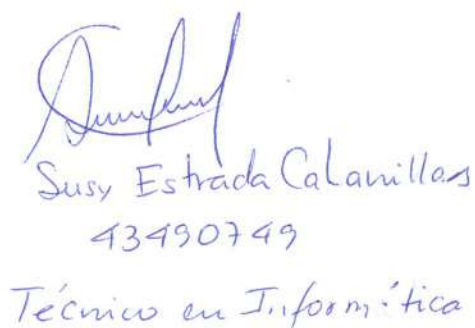 Susy Estrada Calanillas
43490749
Técnico en Informática